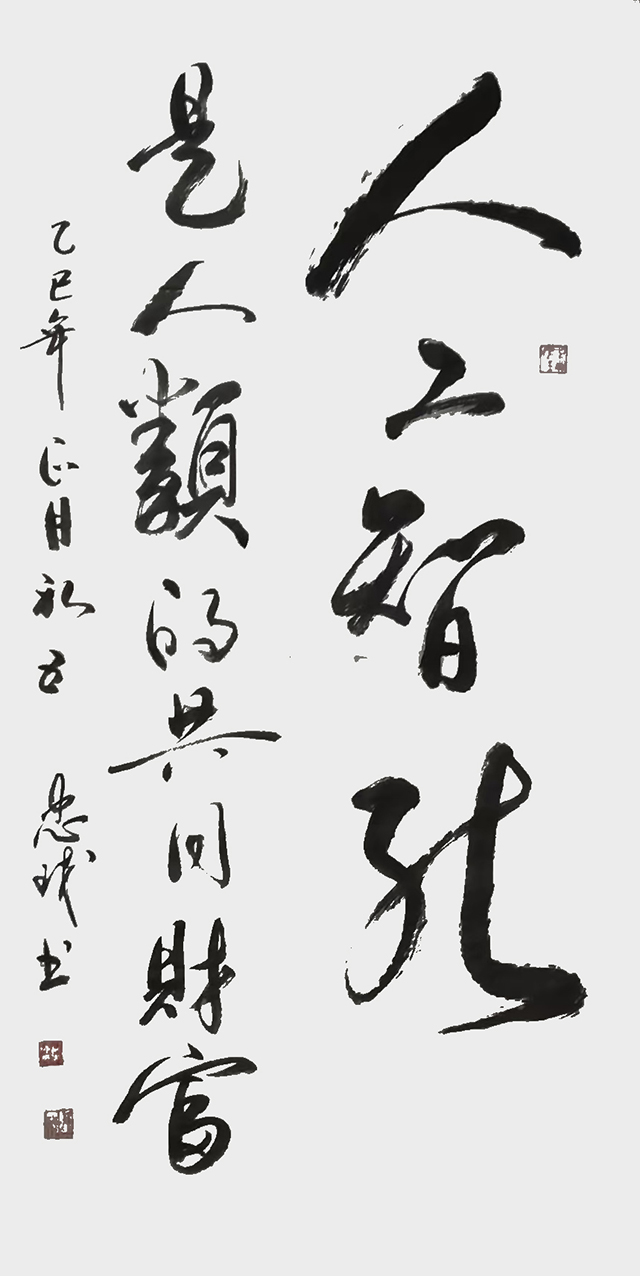 人工智能
是人類的共同財富
乙巳年正月初五
忠諴書